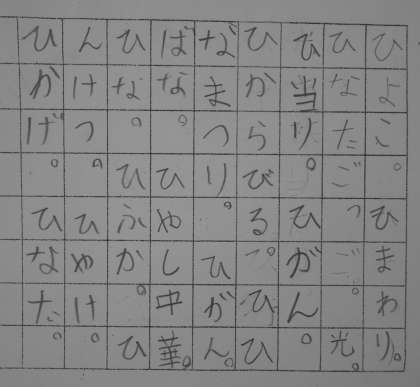 ひよこ。ひまわり。
ひなたごっご。光。
ひ当り。ひがん。
ひからびる。ひひ
なまつり。ひがん。
ばな。ひやし中華。
ひな。ひふか。ひ
んけつ。ひやけ。
ひがげ。ひなた。